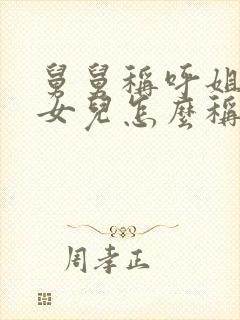 舅舅稱呼姐
女兒怎麼稱
周孝正